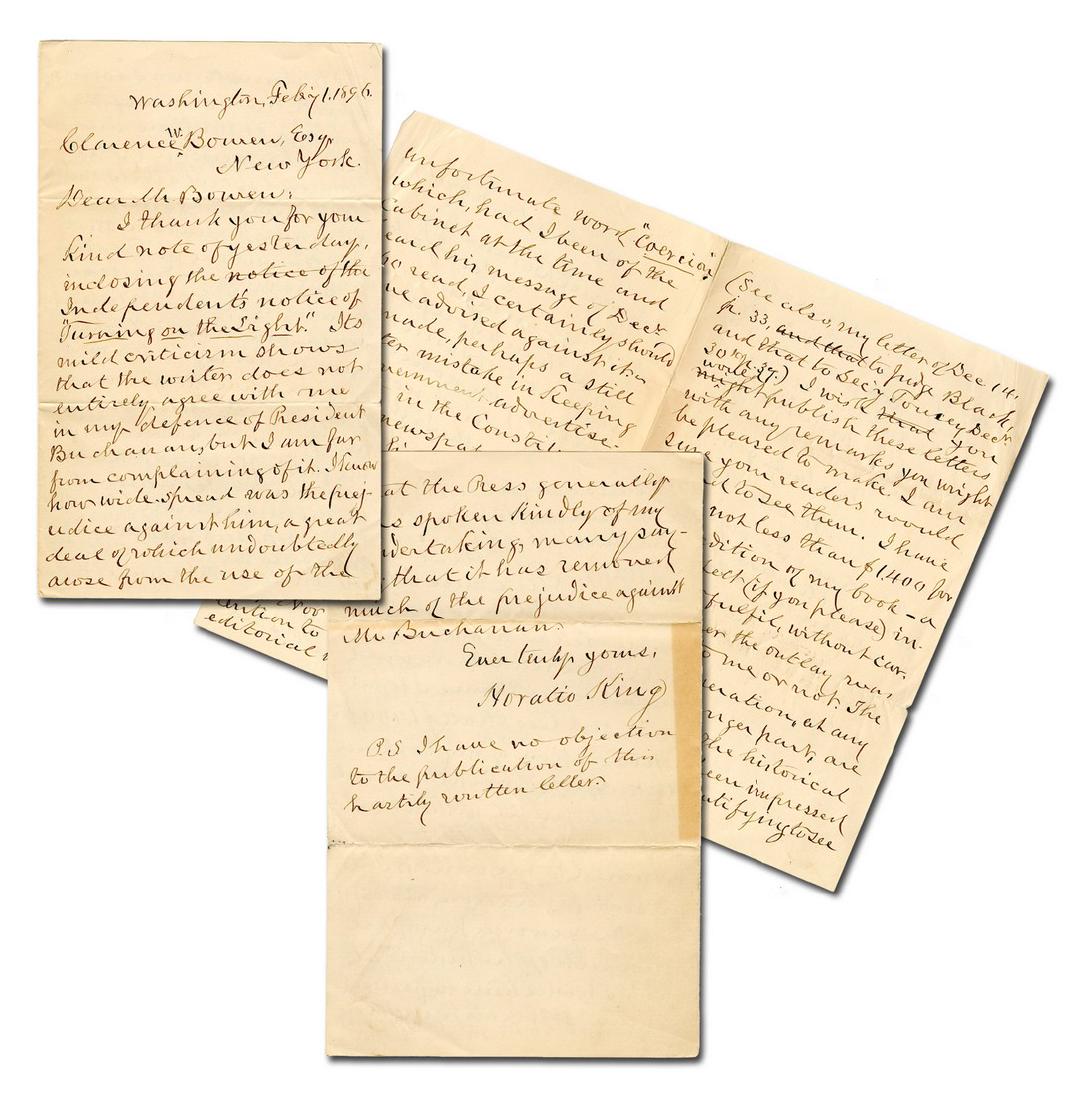 Washington, Feb'y 1. 1896.
Clarence W. Bowen, Esq.
New York.
Dear Mr Bowen:
I thank you for your
kind note of yesterday,
inclosing the notice of the
Independent's notice of
"Turning on the Light." Its
mild criticism shows
that the writer does not
entirely agree with me
in my defence of President
Buchanan, but I am far
from complaining of it. I know
how wide-spread was the prej-
udice against him, a great
deal of which undoubtedly
arose from the use of the
unfortunate word "Coercion"
which, had I been of the
Cabinet at the time and
heard his message of Decr.
read, I certainly should
advised against it. a
made, perhaps a still
mistake in keeping
advertise-
in the Constit
newspa
to
editorial
(See also, my letter of Dec 14,
p. 33, and that to Judge Black,
and that to Sec'y Toucey Decr.
30th p. 39.) I wish that you
would might publish these letters
with any remarks you might
be pleased to make. I am
sure your readers would
to see them. I have
not less than $1.400 for
edition of my book - a
(if you please) in-
fulfil, without car-
the outlay was
to me or not. The
at any
part, are
the historical
been impressed
to see
at the Press generally
spoken kindly of my
undertaking, many say-
that it has removed
much of the prejudice against
Mr Buchanan.
Ever truly yours,
Horatio King
P.S I have no objection
to the publication of this
hastily written letter.